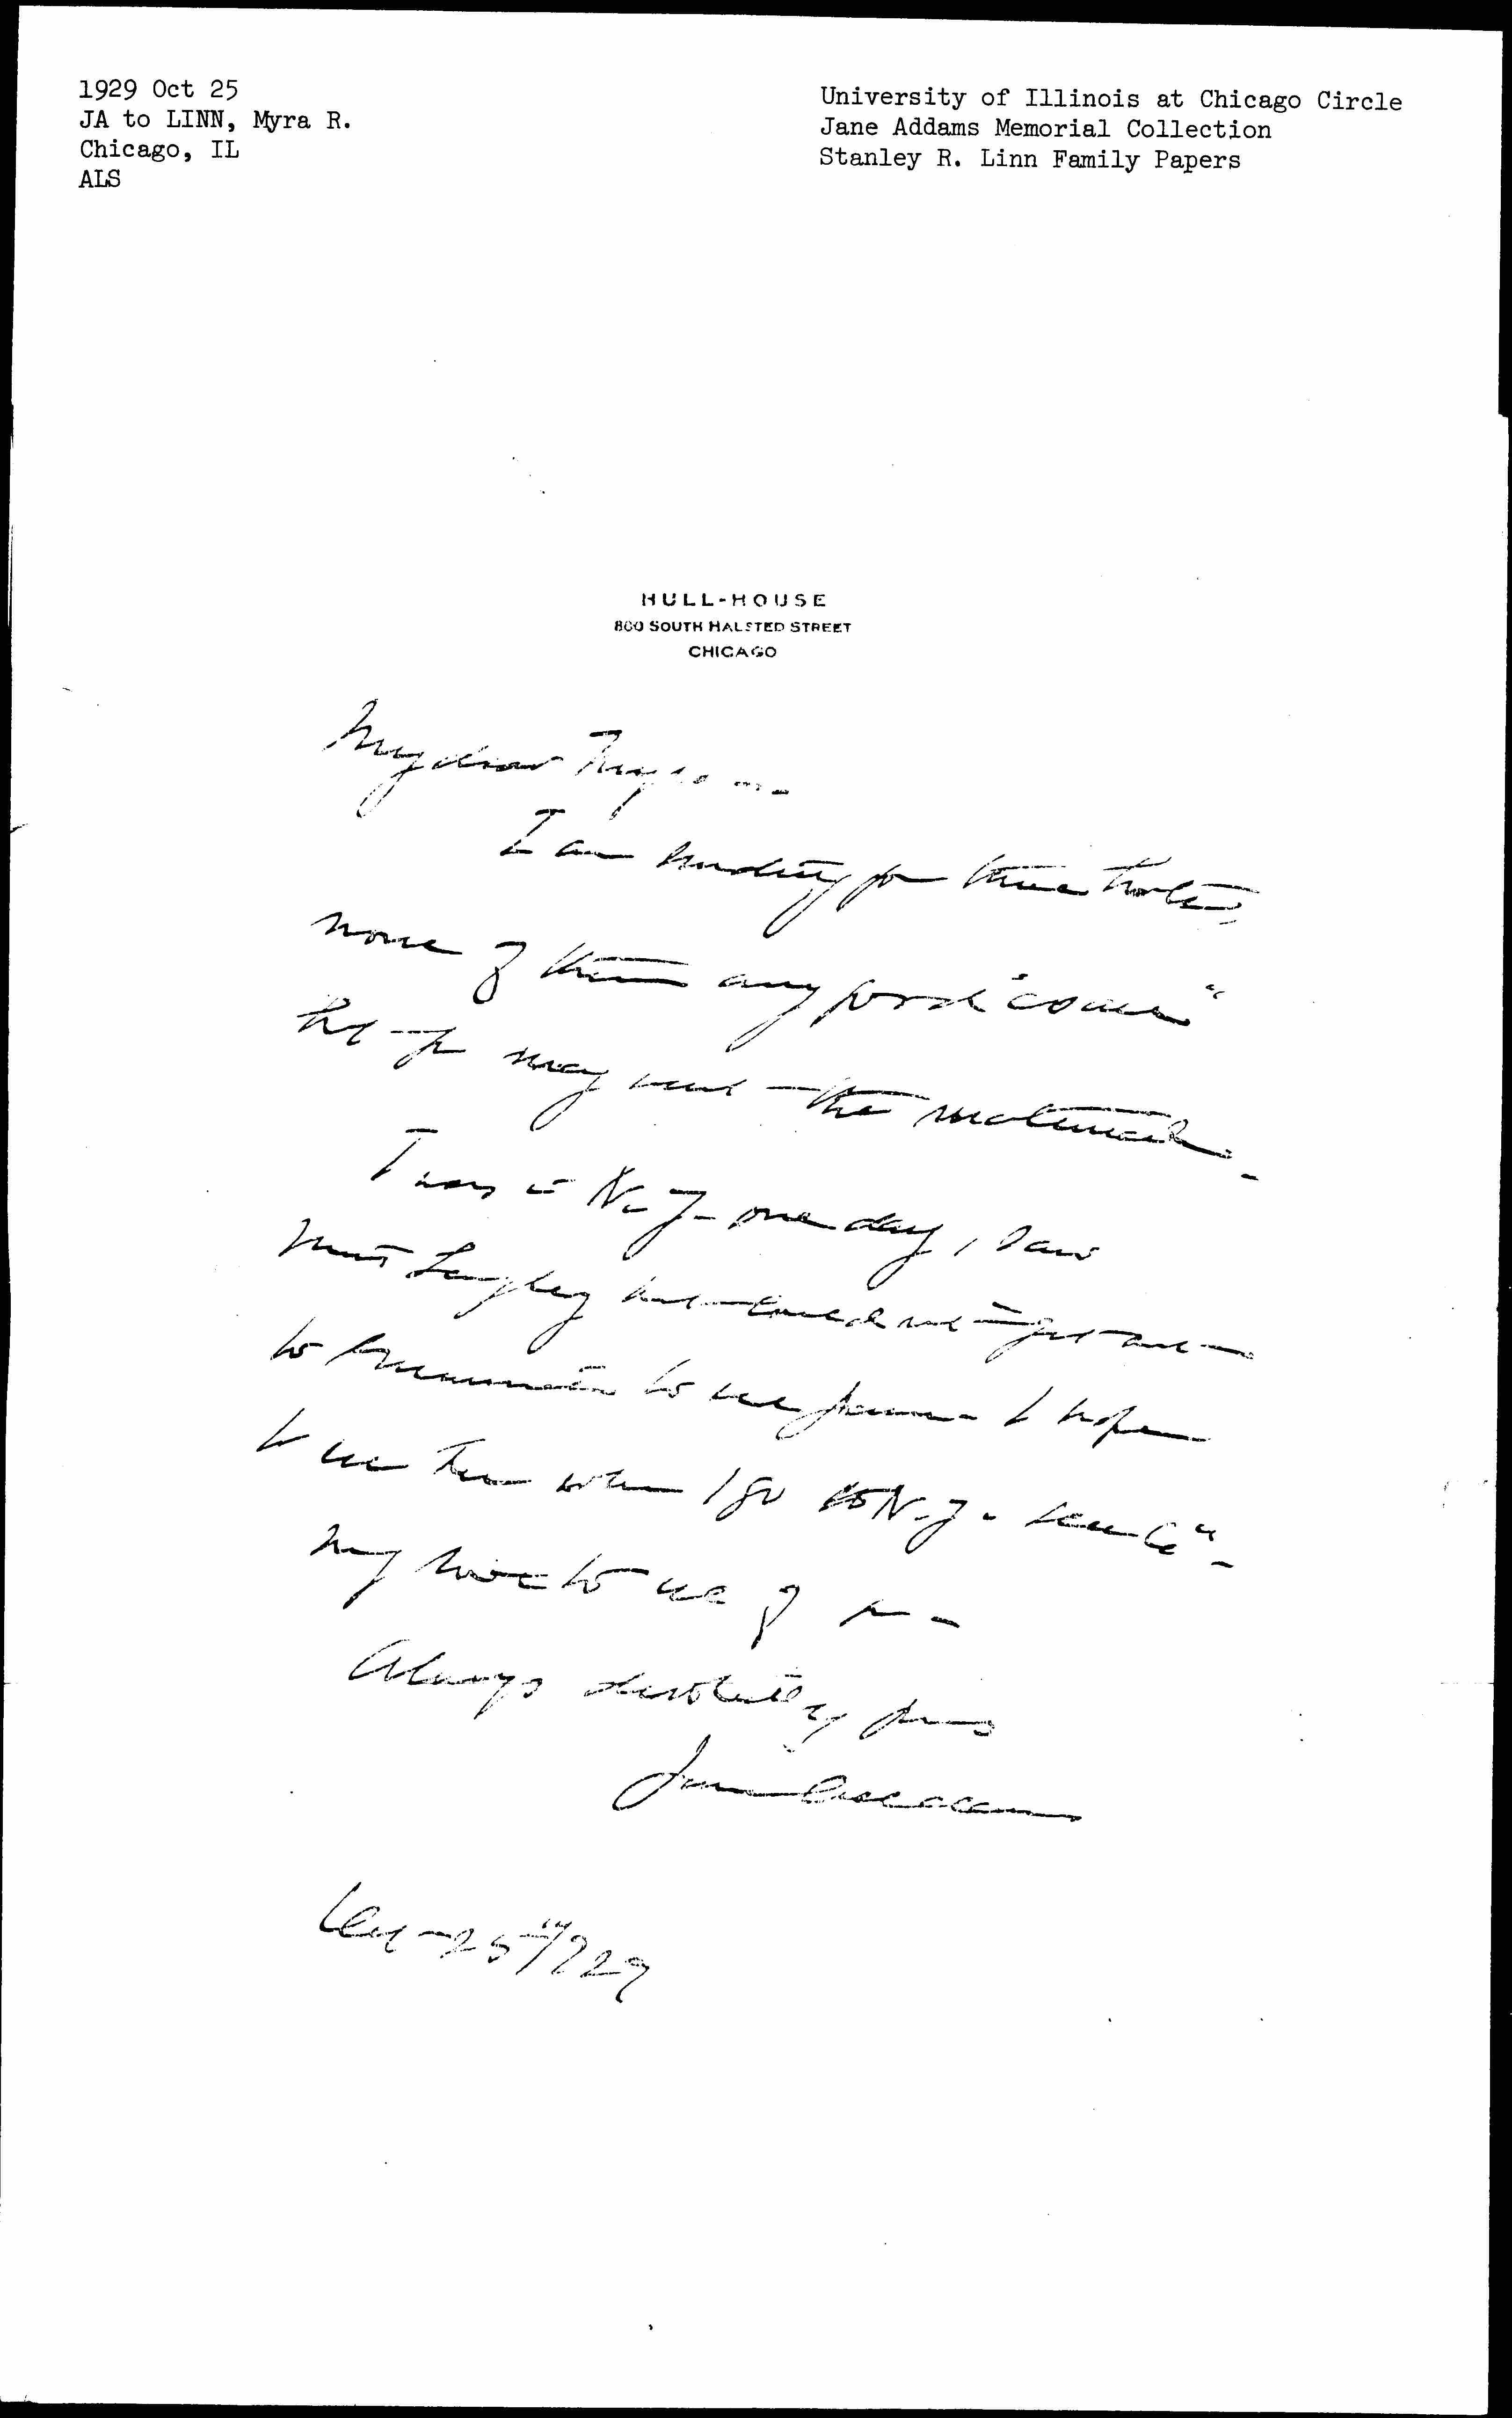 1929 Oct 25
JA to LINN, Myra R.
Chicago, IL
ALS
University of Illinois at Chicago Circle
Jane Addams Memorial Collection
Stanley R. Linn Family Papers
HULL-HOUSE
800 SOUTH HALSTED STREET
CHICAGO
My dear Myra
I am sending you three
none of them any good
but you may want the material
I was in N.Y. one day, saw
Miss Langley but could not get out
to to see you I hope
to see them when I go to N.Y.
My love to all of you
Always devotedly yours
Jane Addams
Oct 25" 1929